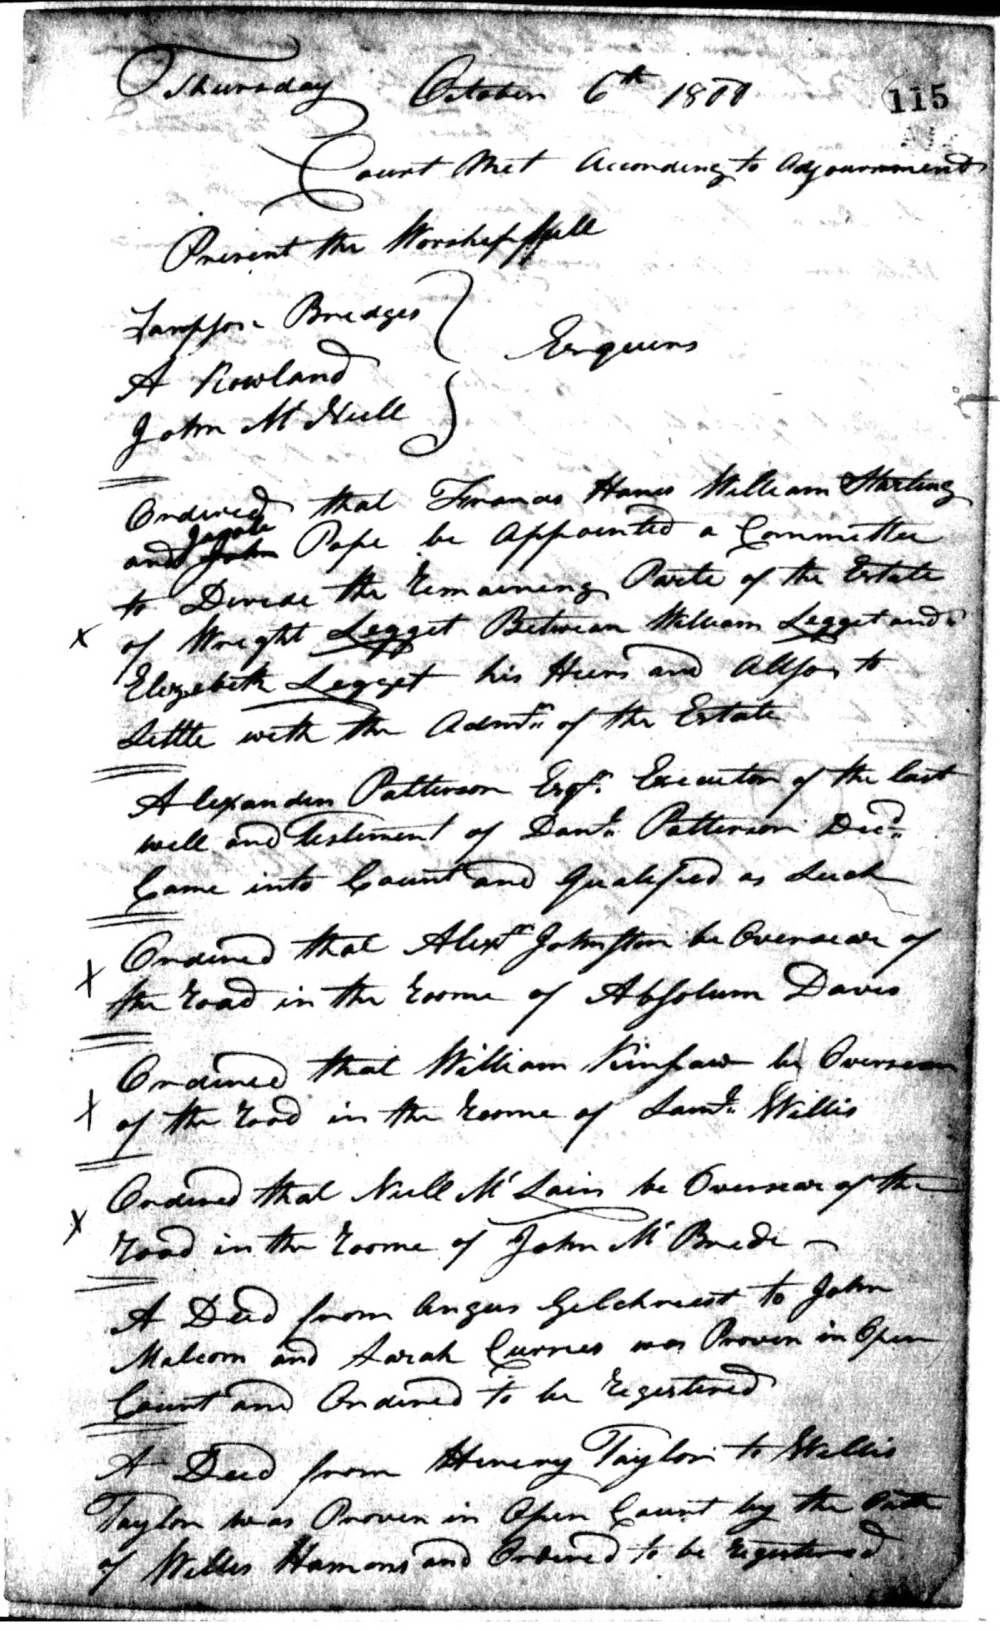 Thursday October 6th 1800
115
Court Met According to Adjournment
Present the Worshipffull
Sampson Bridges
A Rowland
John Mc Neill
Esquiers
Ordered that Francis Hanes William Starling
Jacob
and John Pope be Appointed a Committee
to Devide the Remaineng Parte of the Estate
x of Wright Legget Between William Legget and
Elizebeth Legget his Heirs and Allso to
Settle with the Admtr of the Estate
Alexander Patterson Esqr. Executor of the last
will and Testement of Danl. Patterson Decd.
Came into Court and Qualified as Such
Ordered that Alexr Johnston be Overseear of
x the Road in the Roome of Absolum Davis
Ordered that William Kinsaw be Overseear
x of the Road in the Roome of Saml. Willis
Ordered that Neill Mc Lain be Overseear of the
x Road in the Roome of John Mc Brede
A Deed from Angus Gelchreest to John
Malcom and Sarah Curries was Proven in Open
Court and Ordered to be Registered
A Deed from Henery Taylor to Willis
Taylor was Proven in Open Court by the Oath
of Willis Hamons and Ordered to be Registered